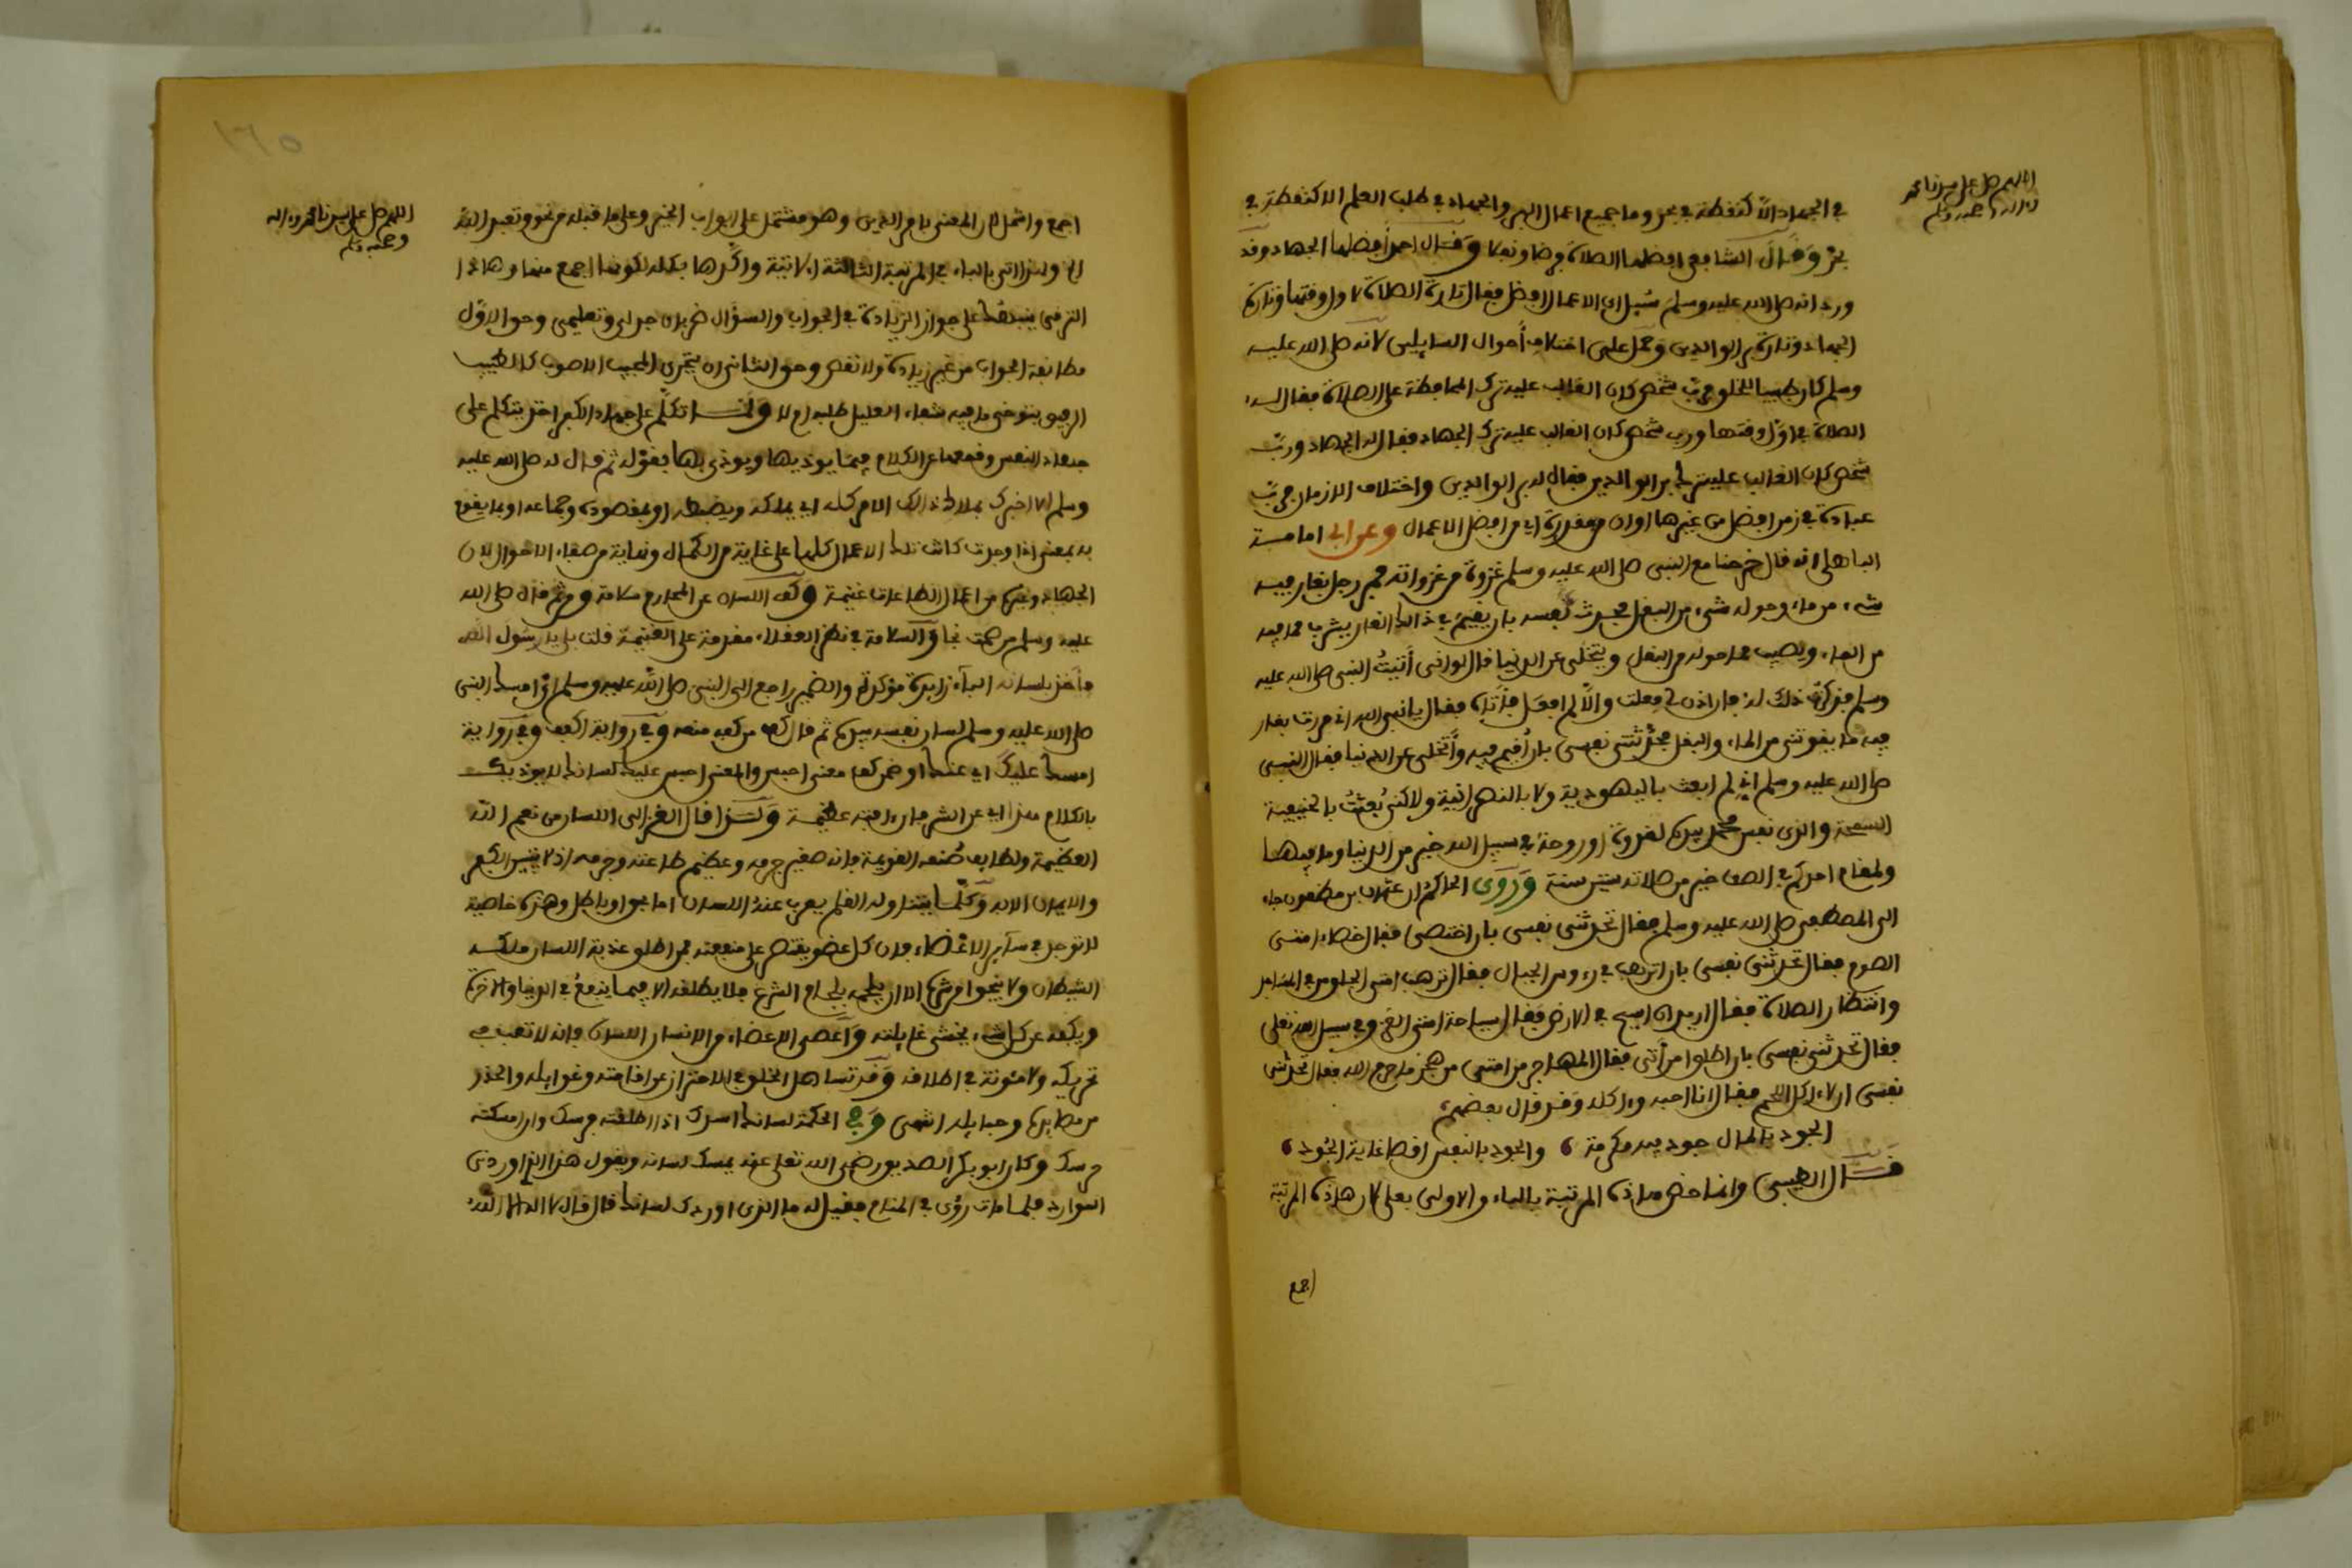 اللهم صل على سيدنا محمد
وءاله وصحبه وسلم
في الجهاد الا كنقطة في بحر وما جميع اعمال البر والجهاد في طلب العلم الا كنقطة في
بحر وقال الشافعي افضلها الصلاة فرضا ونفلا وقال احمد افضلها الجهاد وقد
ورد انه صلى الله عليه وسلم سُيل اي الاعمال افضل فقال تارة الصلاة لاول وقتها وتارة
الجهاد وتارة بر الوالدين وحمل على اختلاف أحوال السايلين لانه صلى الله عليه
وسلم كان طبيبا للخلق فربّ شخص كان الغالب عليه ترك المحافظة على الصلاة فقال له
الصلاة في اوّل وقتها ورب شخص كان الغالب عليه ترك الجهاد فقال له الجهاد وربّ
شخص كان الغالب عليه ترك بر الوالدين فقال له بر الوالدين واختلاف الازمان فربّ
عبادة في زمن افضل من غيرها اوان من مقدرة اي من افضل الاعمال وعن ابي امامة
الباهلي انه قال خرجنا مع النبي صلى الله عليه وسلم غزوة من غزواته فمر رجل بغار فيه
شيء من ماء وحوله شيء من البقل فحدث نفسه بان يقيم في ذالك الغار يشرب مما فيه
من الماء ويصيب مما حوله من البقل ويتخلى عن الدنيا قال لو اني أتيتُ النبي صلى الله عليه
وسلم فذكرت ذلك له فان اذن لي فعلت والّا لم افعل فأتاه فقال يا نبي الله اني مررت بغار
فيه ما يقوتني من الماء والبقل فحدّثتني نفسي بان أقيم فيه وأتخلى عن الدنيا فقال النبي
صلى الله عليه وسلم اني لم ابعث باليهودية ولا بالنصرانية ولاكني بُعثتُ بالحنيفية
السمحة والذي نفس محمد بيده لغدوة او روحة في سبيل الله خير من الدنيا وما فيها
ولمقام احدكم في الصف خير من صلاته ستين سنة وَرَوَى الحاكم ان عثمان بن مظعون جاء
الى المصطفى صلى الله عليه وسلم فقال تحدثني نفسي بان اختصي فقال خصاء امتي
الصوم فقال تحدثني نفسي بان اترهب في رءوس الجبال فقال ترهب امتي الجلوس في المساجد
وانتظار الصلاة فقال اريد ان اسيح في الارض فقال سياحة امتي الغزو في سبيل الله تعلى
فقال تحدثني نفسي بان اطلق امرأتي فقال المهاجر من امتي من هجر ما حرم الله فقال تحدثني
نفسي ان لا ءاكل اللحم فقال انا احبه وءاكله وقد قال بعضهم
الجود بالمال جود فيه مكرمة ، والجود بالنفس اقصا غاية الجُود ،
قال الطيبي وانما خص هذه المرتبة بالباء والاولى بعلى لان هاذه المرتبة
اجمع
١٦٥
اللهم صل على سيدنا محمد وءاله
وصحبه وسلم
اجمع واشمل لان المعنى بامر الدين وهو مشتمل على ابواب الخير وعلى ما قبله من نحو وتعبد الله
الخ ولذا اتى بالباء في المرتبة الثالثة الاتية واكّدها بكله لكونها اجمع منها وهاذا
الترقي ينبهك على جواز الزيادة في الجواب والسؤال ضربان جدلي وتعليمي وحق الاوّل
مطابقة الجواب من غير زيادة ولا نقص وحق الثاني ان يتحرى المجيب الاصوب كالطبيب
الرفيق يتوخى ما فيه شفاء العليل طلبه ام لا ولما تكلم على جهاد الاكبر اخذ يتكلم على
جهاد النفس وقمعها عن الكلام فيما يوذيها ويوذي بها بقوله ثم قال له صلى الله عليه
وسلم الا اخبرك بملاك ذالك الامر كله اي يملكه ويضبطه او بمقصوده وجماعه او بما يقوم
به بمعنى اذا وجدت كانت تلك الاعمال كلها على غاية من الكمال ونهاية من صفاء الاحوال لان
الجهاد وغيره من اعمال الطاعات غنيمة وكف اللسان عن المحارم سلامة ومن ثم قال صلى الله
عليه وسلم من صمت نجا والسلامة في نظر العقلاء مقدمة على الغنيمة قلت بلى يا رسول الله
فأخذ بلسانه الباء زايدة مؤكدة والضمير راجع الى النبي صلى الله عليه وسلم اي امسك النبي
صلى الله عليه وسلم لسان نفسه بيده ثم قال كف من كفه منعه وفي رواية اكفف وفي رواية
امسك عليك اي عنك او ضمن كف معنى احبس والمعنى احبس عليك لسانك لا يوذيك
بالكلام هذا اي عن الشر فان ءافته عظيمة وكذا قال الغزالي اللسان من نعم الله
العظيمة ولطايف صُنعه القويمة فانه صغير جرمه وعظيم طاعته وجرمه اذ لا يتبين الكفر
والايمان الا به وكلّما يتناوله العلم يعرب عنه اللسان اما بحق او باطل وهذه خاصية
لا توجد في سآير الاعضاء فان كل عضو يقتصر على منفعته فمن اطلق عذبة اللسان ملكه
الشيطان ولا ينجوا من شره الا ان يلجمه بلجام الشرع فلا يطلقه الا فيما ينفعُ في الدنيا والاخرة
ويكفه عن كل شيء يخشى غايلته واعصى الاعضاء من الانسان اللسان فانه لا تعب في
تحريكه ولا مئونة في اطلاقه وقد تساهل الخلق في الاحتراز عن افاته وغوايله والحذر
من مصايده وحبايله انتهى وفي الحكمة لسانك اسدك اذا اطلقته فرسك وان امسكته
حرسك وكان ابو بكر الصديق رضي الله تعلى عنه يمسك لسانه ويقول هذا الذي اوردني
الموارد فلما مات رؤي في المنام فقيل له ما الذي اوردك لسانك قال قال لا اله الا الله